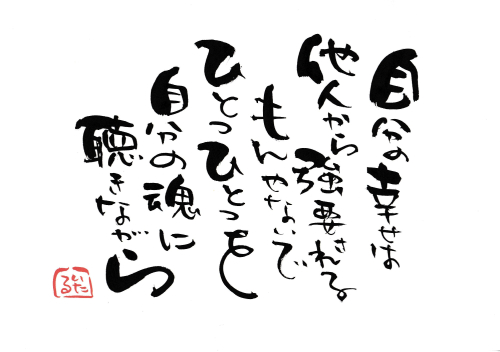 自分の幸せは
他人から強要される
もんやないで
ひとつひとつを
自分の魂に
聴きながら